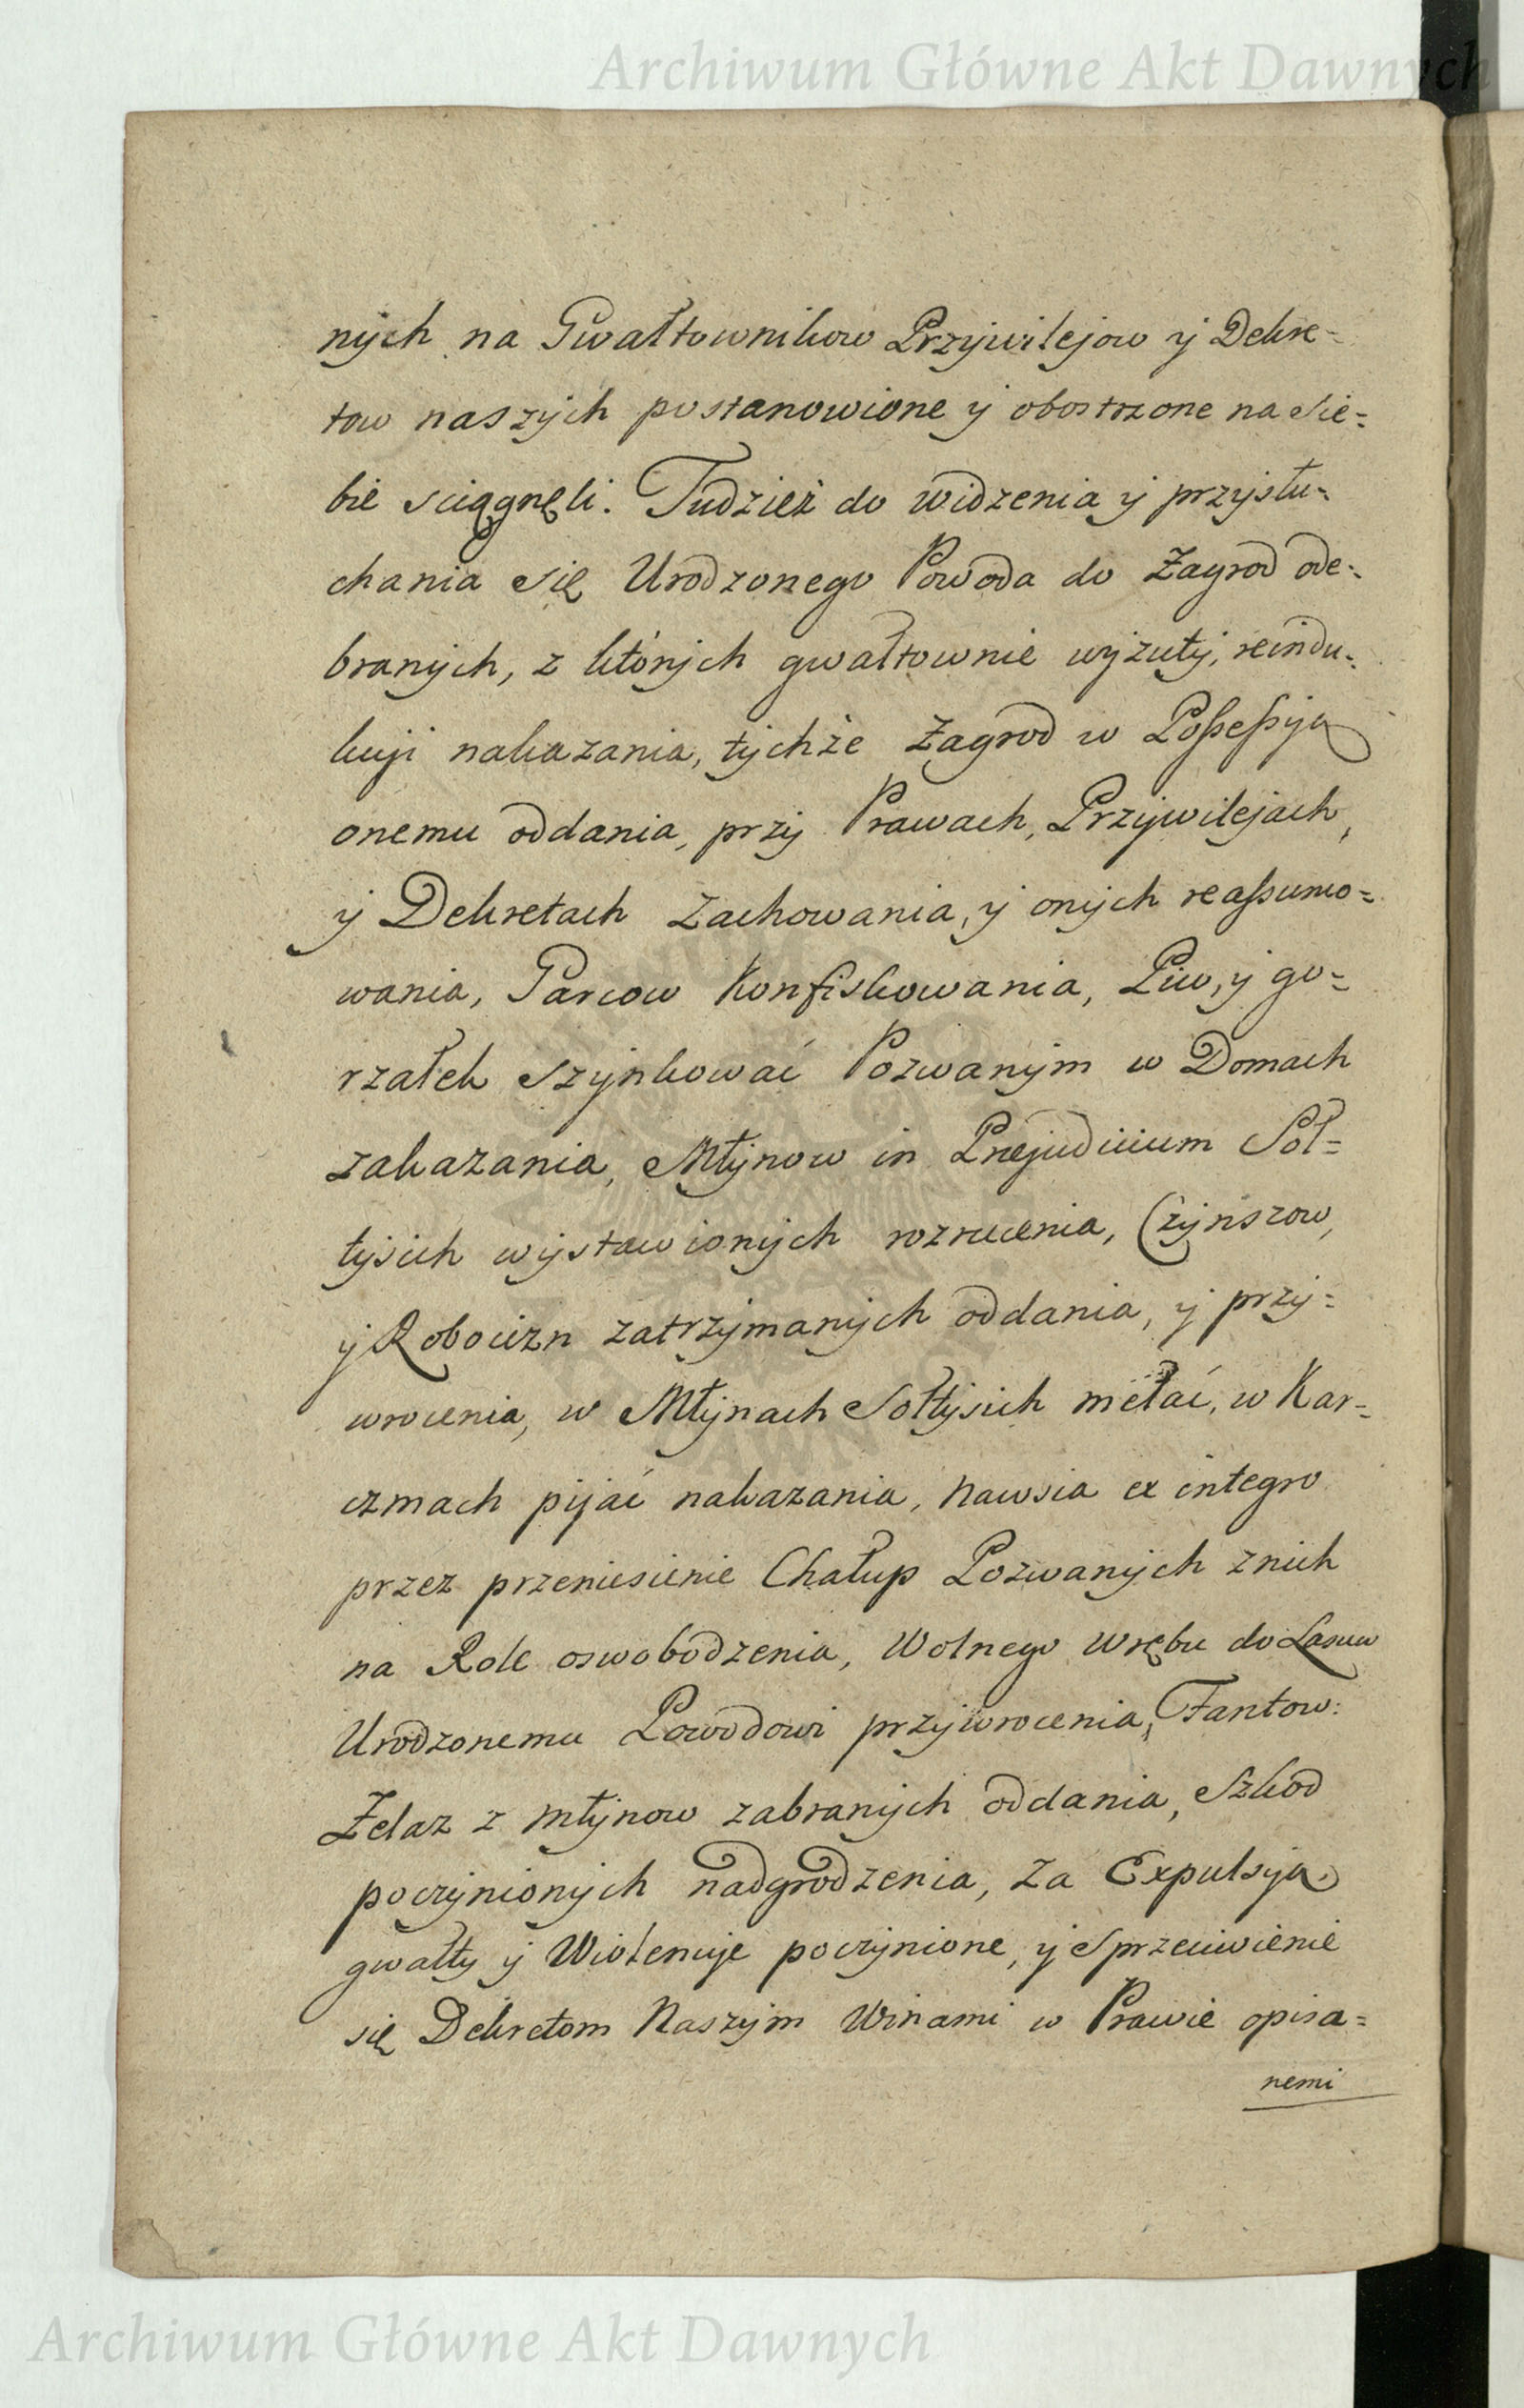 Archiwum Główne Akt Dawnych
nych na Gwałtownikow Przywilejow y Dekre=
tow naszych postanowione y obostrzone na Sie=
bie sciągnęli. Tudzież do widzenia y przysłu=
chania się Urodzonego Powoda do Zagrod ode=
branych, z ktorych gwałtownie wyzuty, reindu=
kcji nakazania, tychże Zagrod w Possessyą
onemu oddania, przy Prawach, Przywilejach,
y Dekretach zachowania, y onych reassumo=
wania, Garcow Konfiskowania, Piw, y go=
rzałek Szynkować Pozwanym w Domach
zakazania, Młynow in Præjudicium Soł=
tysich wystawionych rozrucenia, Czynszow,
y Robocizn zatrzymanych oddania, y przy=
wrocenia, w Młynach Sołtysich mełać, w Kar=
czmach pijać nakazania, Nawsia ex integro
przez przeniesienie Chałup Pozwanych z nich
na Role oswobodzenia, Wolnego Wrębu do Lasow
Urodzonemu Powodowi przywrocenia, Fantow:
Żelaz z młynow zabranych oddania, Szkod
poczynionych nadgrodzenia, za Expulsyą
gwałty y Wiolencye poczynione, y Sprzeciwienie
się Dekretom Naszym Winami w Prawie opisa=
nemi
Archiwum Główne Akt Dawnych